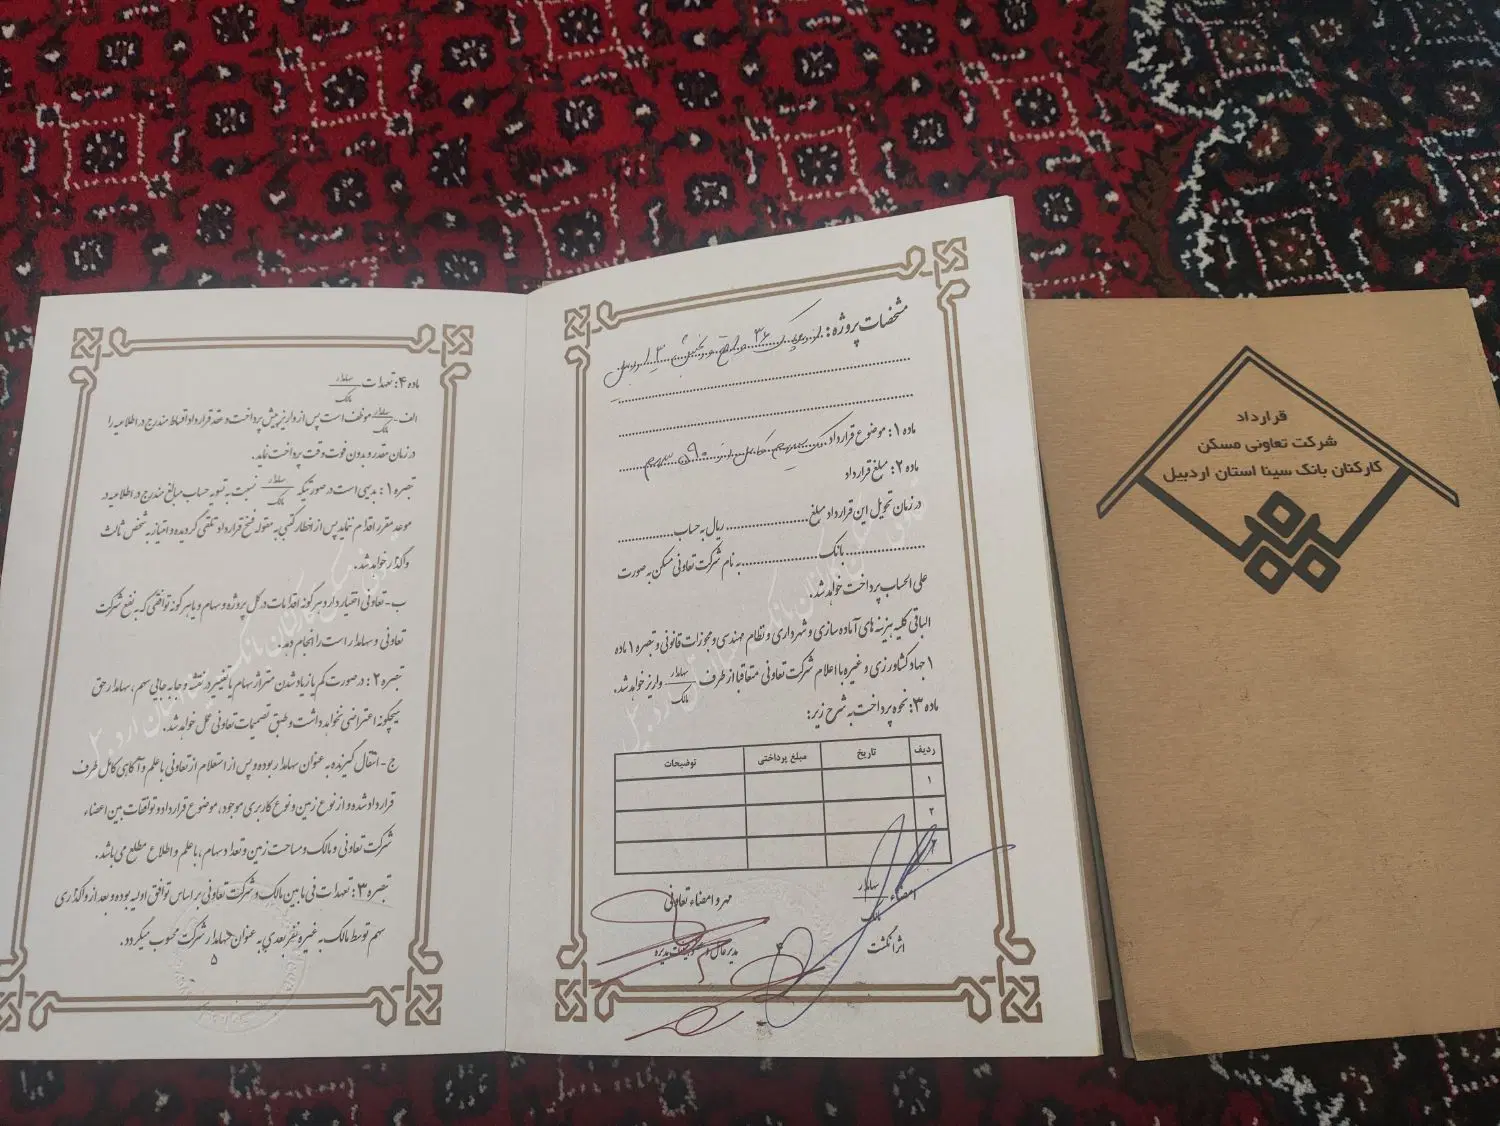 مشخصات پروژه:
ماده ۱: موضوع قرارداد
ماده ۲: مبلغ قرارداد
در زمان تحویل این قرارداد مبلغ .................... ریال به حساب ..............
.................... بانک .................... به نام شرکت تعاونی مسکن به صورت
علی الحساب پرداخت خواهد شد.
الباقی کلیه هزینه های آماده سازی و شهرداری و نظام مهندسی و مجوزات قانونی و تبصره ۱ ماده
۱ جهاد کشاورزی و غیره با اعلام شرکت تعاونی متعاقبا از طرف سهامدار/مالک واریز خواهد شد.
ماده ۳: نحوه پرداخت به شرح زیر:
ردیف تاریخ مبلغ پرداختی توضیحات
۱
۲
امضاء سهامدار/مالک مهر و امضاء تعاونی
اثر انگشت ۴ مدیر عامل
ماده ۴: تعهدات سهامدار/مالک
الف- سهامدار/مالک موظف است پس از واریز پیش پرداخت و عقد قرارداد اقساط مندرج در اطلاعیه را
در زمان مقدر و بدون فوت وقت پرداخت نماید.
تبصره ۱: بدیهی است در صورتیکه سهامدار/مالک نسبت به تسویه حساب مبالغ مندرج در اطلاعیه در
موعد مقرر اقدام ننماید پس از اخطار کتبی به مقوله فسخ قرارداد تلقی گردیده و امتیاز به شخص ثالث
واگذار خواهد شد.
ب- تعاونی اختیار دارد هر گونه اقدامات در کل پروژه و سهام و یا هر گونه توافقی که به نفع شرکت
تعاونی و سهامدار است را انجام دهد.
تبصره ۲: در صورت کم یا زیاد شدن متراژ سهام یا تغییر در نقشه و جابه جایی سهم، سهامدار حق
هیچگونه اعتراضی نخواهد داشت و طبق تصمیمات تعاونی عمل خواهد شد.
ج- انتقال گیرنده به عنوان سهامدار بوده و پس از استعلام از تعاونی با علم و آگاهی کامل طرف
قرارداد شده و از نوع زمین و نوع کاربری موجود، موضوع قرارداد و توافقات بین اعضاء
شرکت تعاونی و مالک و مساحت زمین و تعداد سهام، با علم و اطلاع مطلع می باشد.
تبصره ۳: تعهدات فی مابین مالک و شرکت تعاونی بر اساس توافق اولیه بوده و بعد از واگذاری
سهم توسط مالک به غیره نفر بعدی به عنوان سهامدار شرکت محسوب میگردد.
۵
قرارداد
شرکت تعاونی مسکن
کارکنان بانک سینا استان اردبیل